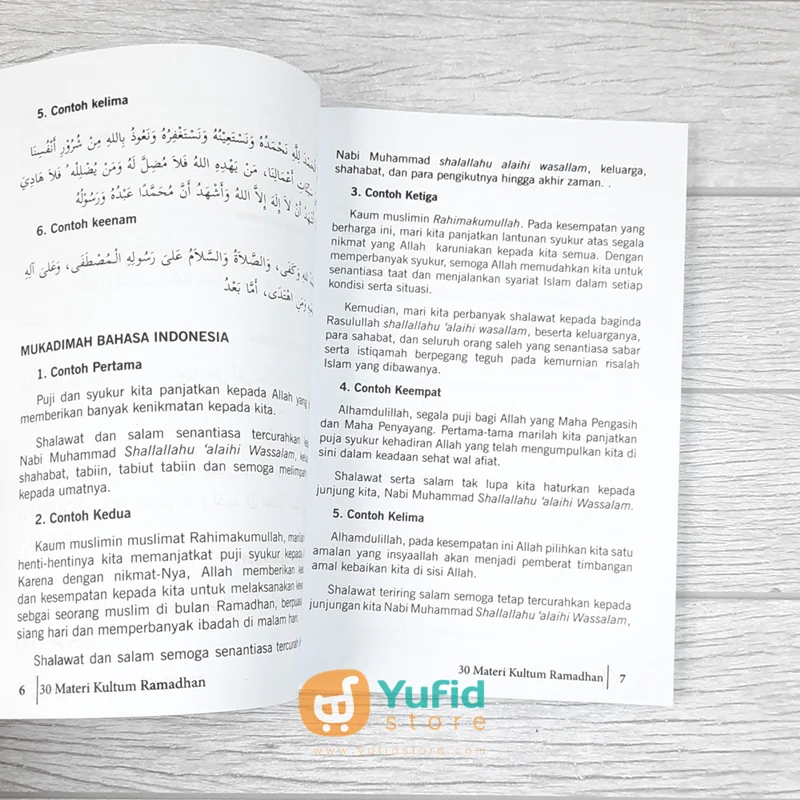 5. Contoh kelima
لِلَّهِ نَحْمَدُهُ وَنَسْتَعِيْنُهُ وَنَسْتَغْفِرُهُ وَنَعُوذُ بِاللهِ مِنْ شُرُوْرِ أَنْفُسِنَا
أَعْمَالِنَا، مَنْ يَهْدِهِ اللهُ فَلَا مُضِلَّ لَهُ وَمَنْ يُضْلِلْهُ فَلَا هَادِيَ
أَنْ لَا إِلَهَ إِلَّا اللهُ وَأَشْهَدُ أَنَّ مُحَمَّدًا عَبْدُهُ وَرَسُوْلُهُ
6. Contoh keenam
وَكَفَى، وَالصَّلَاةُ وَالسَّلَامُ عَلَى رَسُوْلِهِ الْمُصْطَفَى، وَعَلَى آلِهِ
وَمَنِ اهْتَدَى، أَمَّا بَعْدُ
MUKADIMAH BAHASA INDONESIA
1. Contoh Pertama
Puji dan syukur kita panjatkan kepada Allah yang
memberikan banyak kenikmatan kepada kita.
Shalawat dan salam senantiasa tercurahkan
Nabi Muhammad Shallallahu ‘alaihi Wassalam,
shahabat, tabiin, tabiut tabiin dan semoga
kepada umatnya.
2. Contoh Kedua
Kaum muslimin muslimat Rahimakumullah,
henti-hentinya kita memanjatkat puji syukur kepada
Karena dengan nikmat-Nya, Allah memberikan
dan kesempatan kepada kita untuk melaksanakan
sebgai seorang muslim di bulan Ramadhan,
siang hari dan memperbanyak ibadah di malam hari.
Shalawat dan salam semoga senantiasa
6 30 Materi Kultum Ramadhan
Nabi Muhammad shalallahu alaihi wasallam, keluarga,
shahabat, dan para pengikutnya hingga akhir zaman. .
3. Contoh Ketiga
Kaum muslimin Rahimakumullah. Pada kesempatan yang
berharga ini, mari kita panjatkan lantunan syukur atas segala
nikmat yang Allah karuniakan kepada kita semua. Dengan
memperbanyak syukur, semoga Allah memudahkan kita untuk
senantiasa taat dan menjalankan syariat Islam dalam setiap
kondisi serta situasi.
Kemudian, mari kita perbanyak shalawat kepada baginda
Rasulullah shallallahu ‘alaihi wasallam, beserta keluarganya,
para sahabat, dan seluruh orang saleh yang senantiasa sabar
serta istiqamah berpegang teguh pada kemurnian risalah
Islam yang dibawanya.
4. Contoh Keempat
Alhamdulillah, segala puji bagi Allah yang Maha Pengasih
dan Maha Penyayang. Pertama-tama marilah kita panjatkan
puja syukur kehadiran Allah yang telah mengumpulkan kita di
sini dalam keadaan sehat wal afiat.
Shalawat serta salam tak lupa kita haturkan kepada
junjung kita, Nabi Muhammad Shallallahu ‘alaihi Wassalam.
5. Contoh Kelima
Alhamdulillah, pada kesempatan ini Allah pilihkan kita satu
amalan yang insyaallah akan menjadi pemberat timbangan
amal kebaikan kita di sisi Allah.
Shalawat teriring salam semoga tetap tercurahkan kepada
junjungan kita Nabi Muhammad Shallallahu ‘alaihi Wassalam,
30 Materi Kultum Ramadhan 7
Yufid
store
www.yufidstore.com